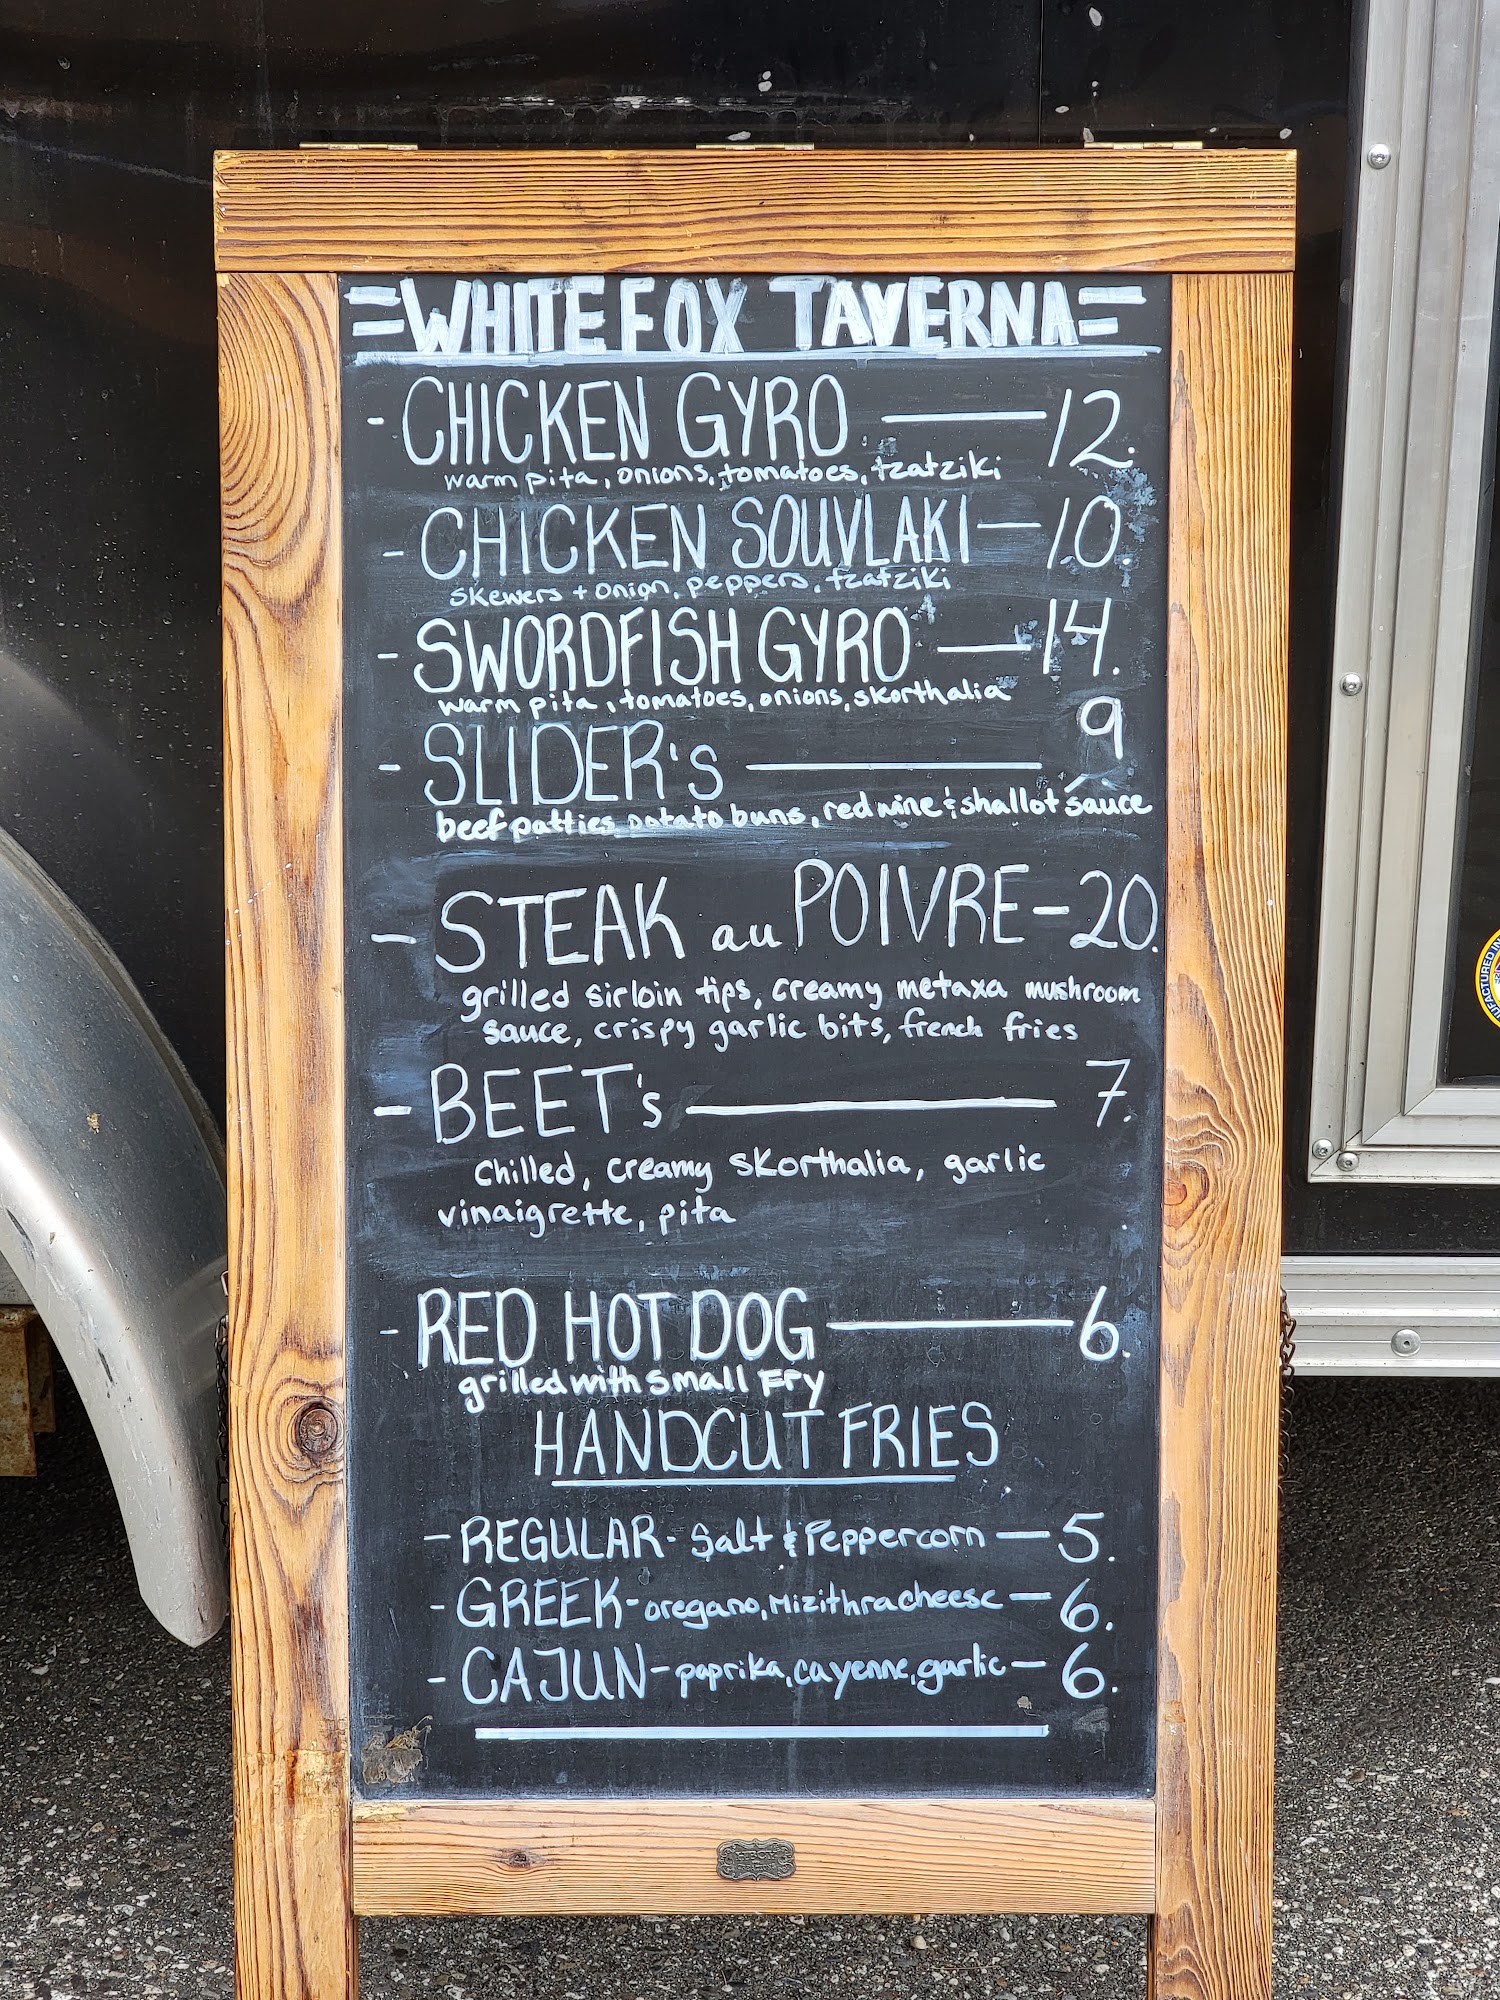 =WHITE FOX TAVERNA=
- CHICKEN GYRO — 12.
warm pita, onions, tomatoes, tzatziki
- CHICKEN SOUVLAKI — 10.
skewers + onion, peppers, tzatziki
- SWORDFISH GYRO — 14.
warm pita, tomatoes, onions, skorthalia
- SLIDER's — 9
beef patties, potato buns, red wine & shallot sauce
- STEAK au POIVRE - 20.
grilled sirloin tips, creamy metaxa mushroom
sauce, crispy garlic bits, french fries
- BEET's — 7.
chilled, creamy skorthalia, garlic
vinaigrette, pita
- RED HOT DOG — 6.
grilled with small Fry
HANDCUT FRIES
- REGULAR - Salt & Peppercorn — 5.
- GREEK - oregano, Mizithra cheese — 6.
- CAJUN - paprika, cayenne, garlic — 6.